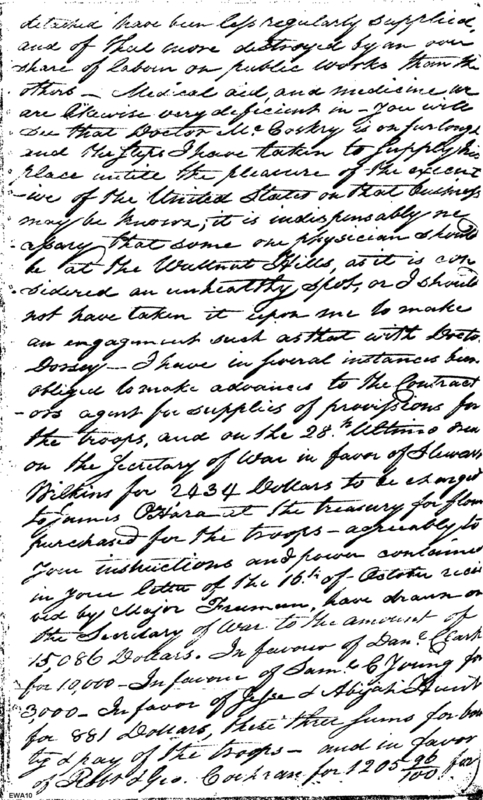 detached have been less regularly supplied,
and of that more destroyed by an over
share of labour on public works than the
others — Medical aid, and medicine we
are likewise very deficient in — You will
see that Doctor McCoskry is on furlough
and the steps I have taken to supply his
place untill the pleasure of the execut
-ive of the United States on that business
may be known; it is indispensably ne
cessary that some one physician should
be at the Wallnut Hills, as it is con
sidered an unhealthy spot, or I should
not have taken it upon me to make
an engagement such as that with Doctor
Dorsey — I have in several instances been
obliged to make advances to the Contract
-ors agent for supplies of provisions for
the troops, and on the 28th Ultimo drew
on the Secretary of War in favor of
Wilkins for 2434 Dollars to be charged
to James O'Hara at the treasury for flour
purchased for the troops — agreeably to
Your instructions and power contained
in your letter of the 16th of October recei
ved by Major Freeman, have drawn on
the Secretary of War to the amount of
15,086 Dollars. In favour of Danl Clark
for 10,000 — In favour of Saml C Young for
3,000 — In favor of Jesse & Abijah Hunt
for 881 Dollars, these three sums for boun
ty & pay of the troops — and in favor
of Robt & Geo. Cochran for 1205 96/100 for
EWA10